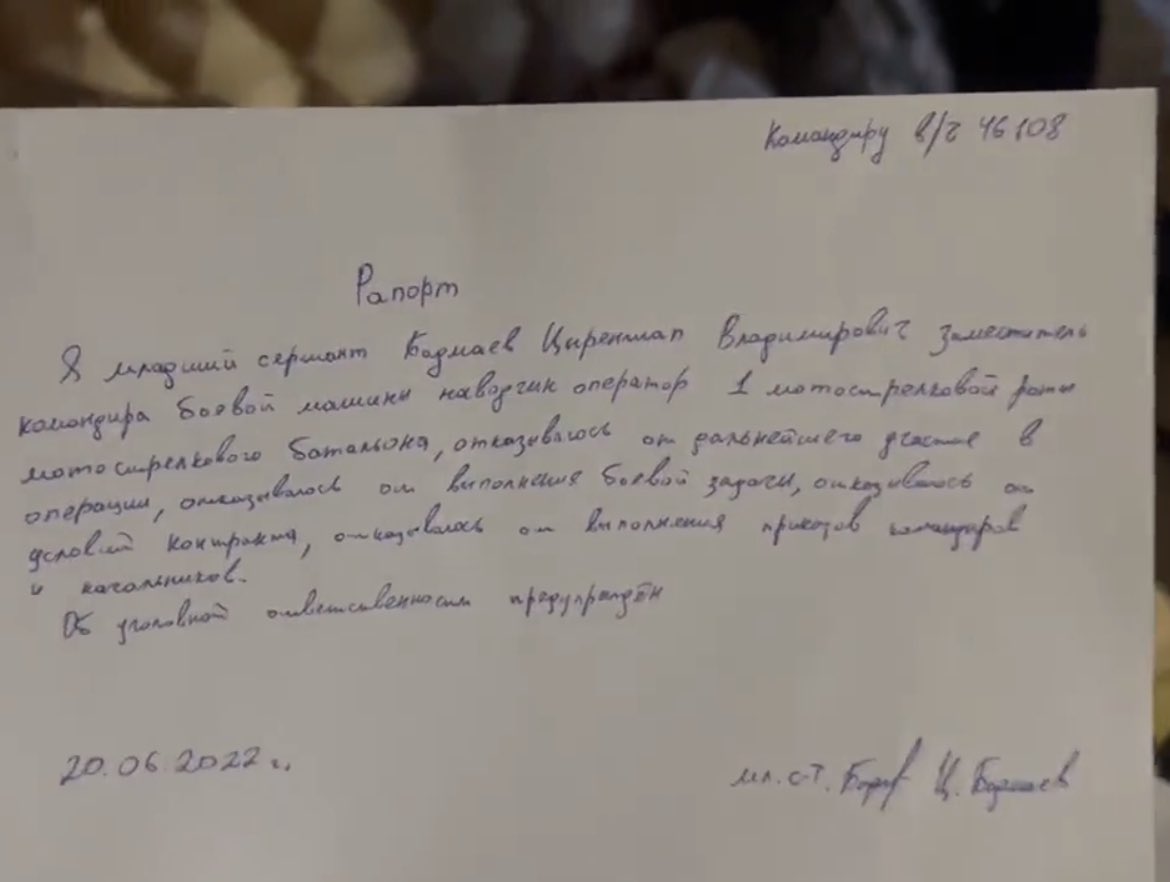 Командиру в/ч 46108
Рапорт
Я младший сержант Бадмаев Циренжап Владимирович заместитель
командира боевой машины наводчик оператор 1 мотострелковой роты
мотострелкового батальона, отказываюсь от дальнейшего участие в
операции, отказываюсь от выполнения боевой задачи, отказываюсь от
условий контракта, отказываюсь от выполнения приказов командиров
и начальников.
Об уголовной ответственности предупреждён
20.06.2022 г.
мл. с-т. Ц. Бадмаев